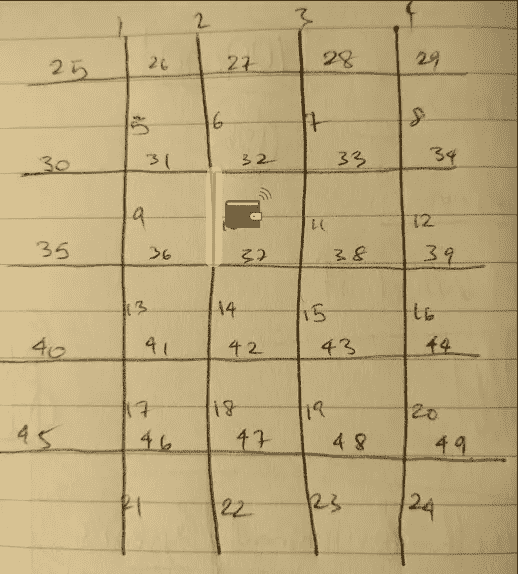 1 2 3 4
25 26 27 28 29
5 6 7 8
30 31 32 33 34
9 11 12
35 36 37 38 39
13 14 15 16
40 41 42 43 44
17 18 19 20
45 46 47 48 49
21 22 23 24